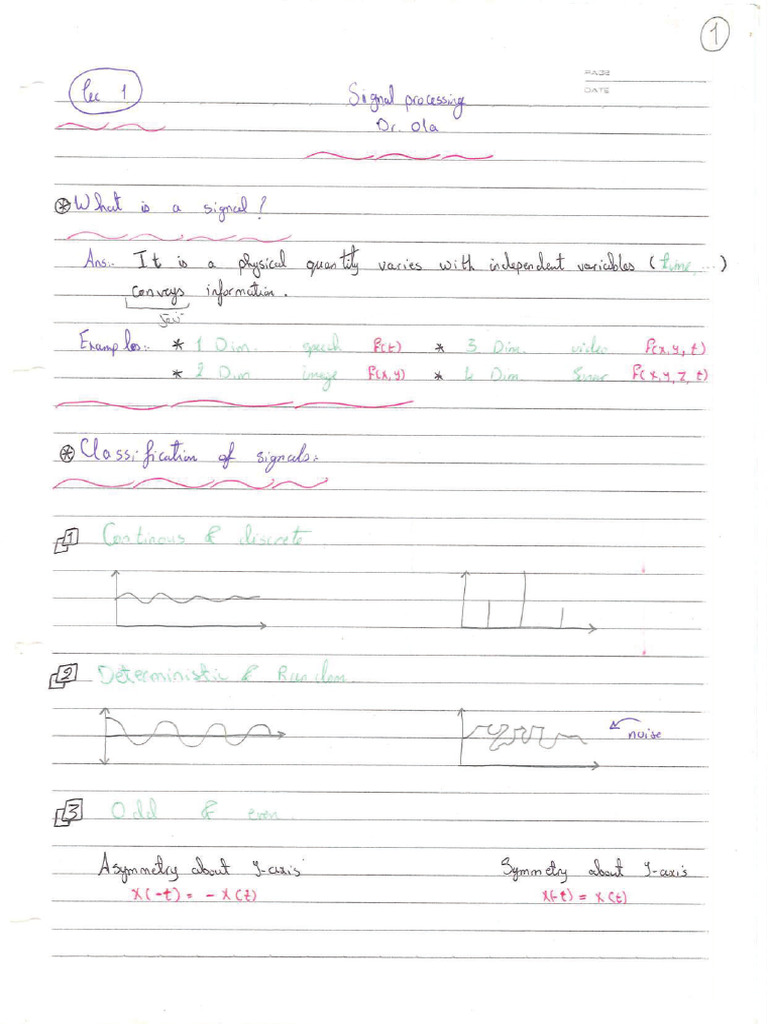 1
PAGE
DATE
Lec 1
Signal processing
Dr. Ola
What is a signal?
Ans:- It is a physical quantity varies with independent variables (time, ...)
conveys information.
Examples:- * 1 Dim. speech f(t) * 3 Dim. video f(x,y,t)
* 2 Dim image f(x,y) * 4 Dim Sonar f(x,y,z,t)
Classification of signals:-
1 Continous & discrete
2 Deterministic & Random
noise
3 Odd & even
Asymmetry about Y-axis Symmetry about Y-axis
x(-t) = - x(t) x(-t) = x(t)